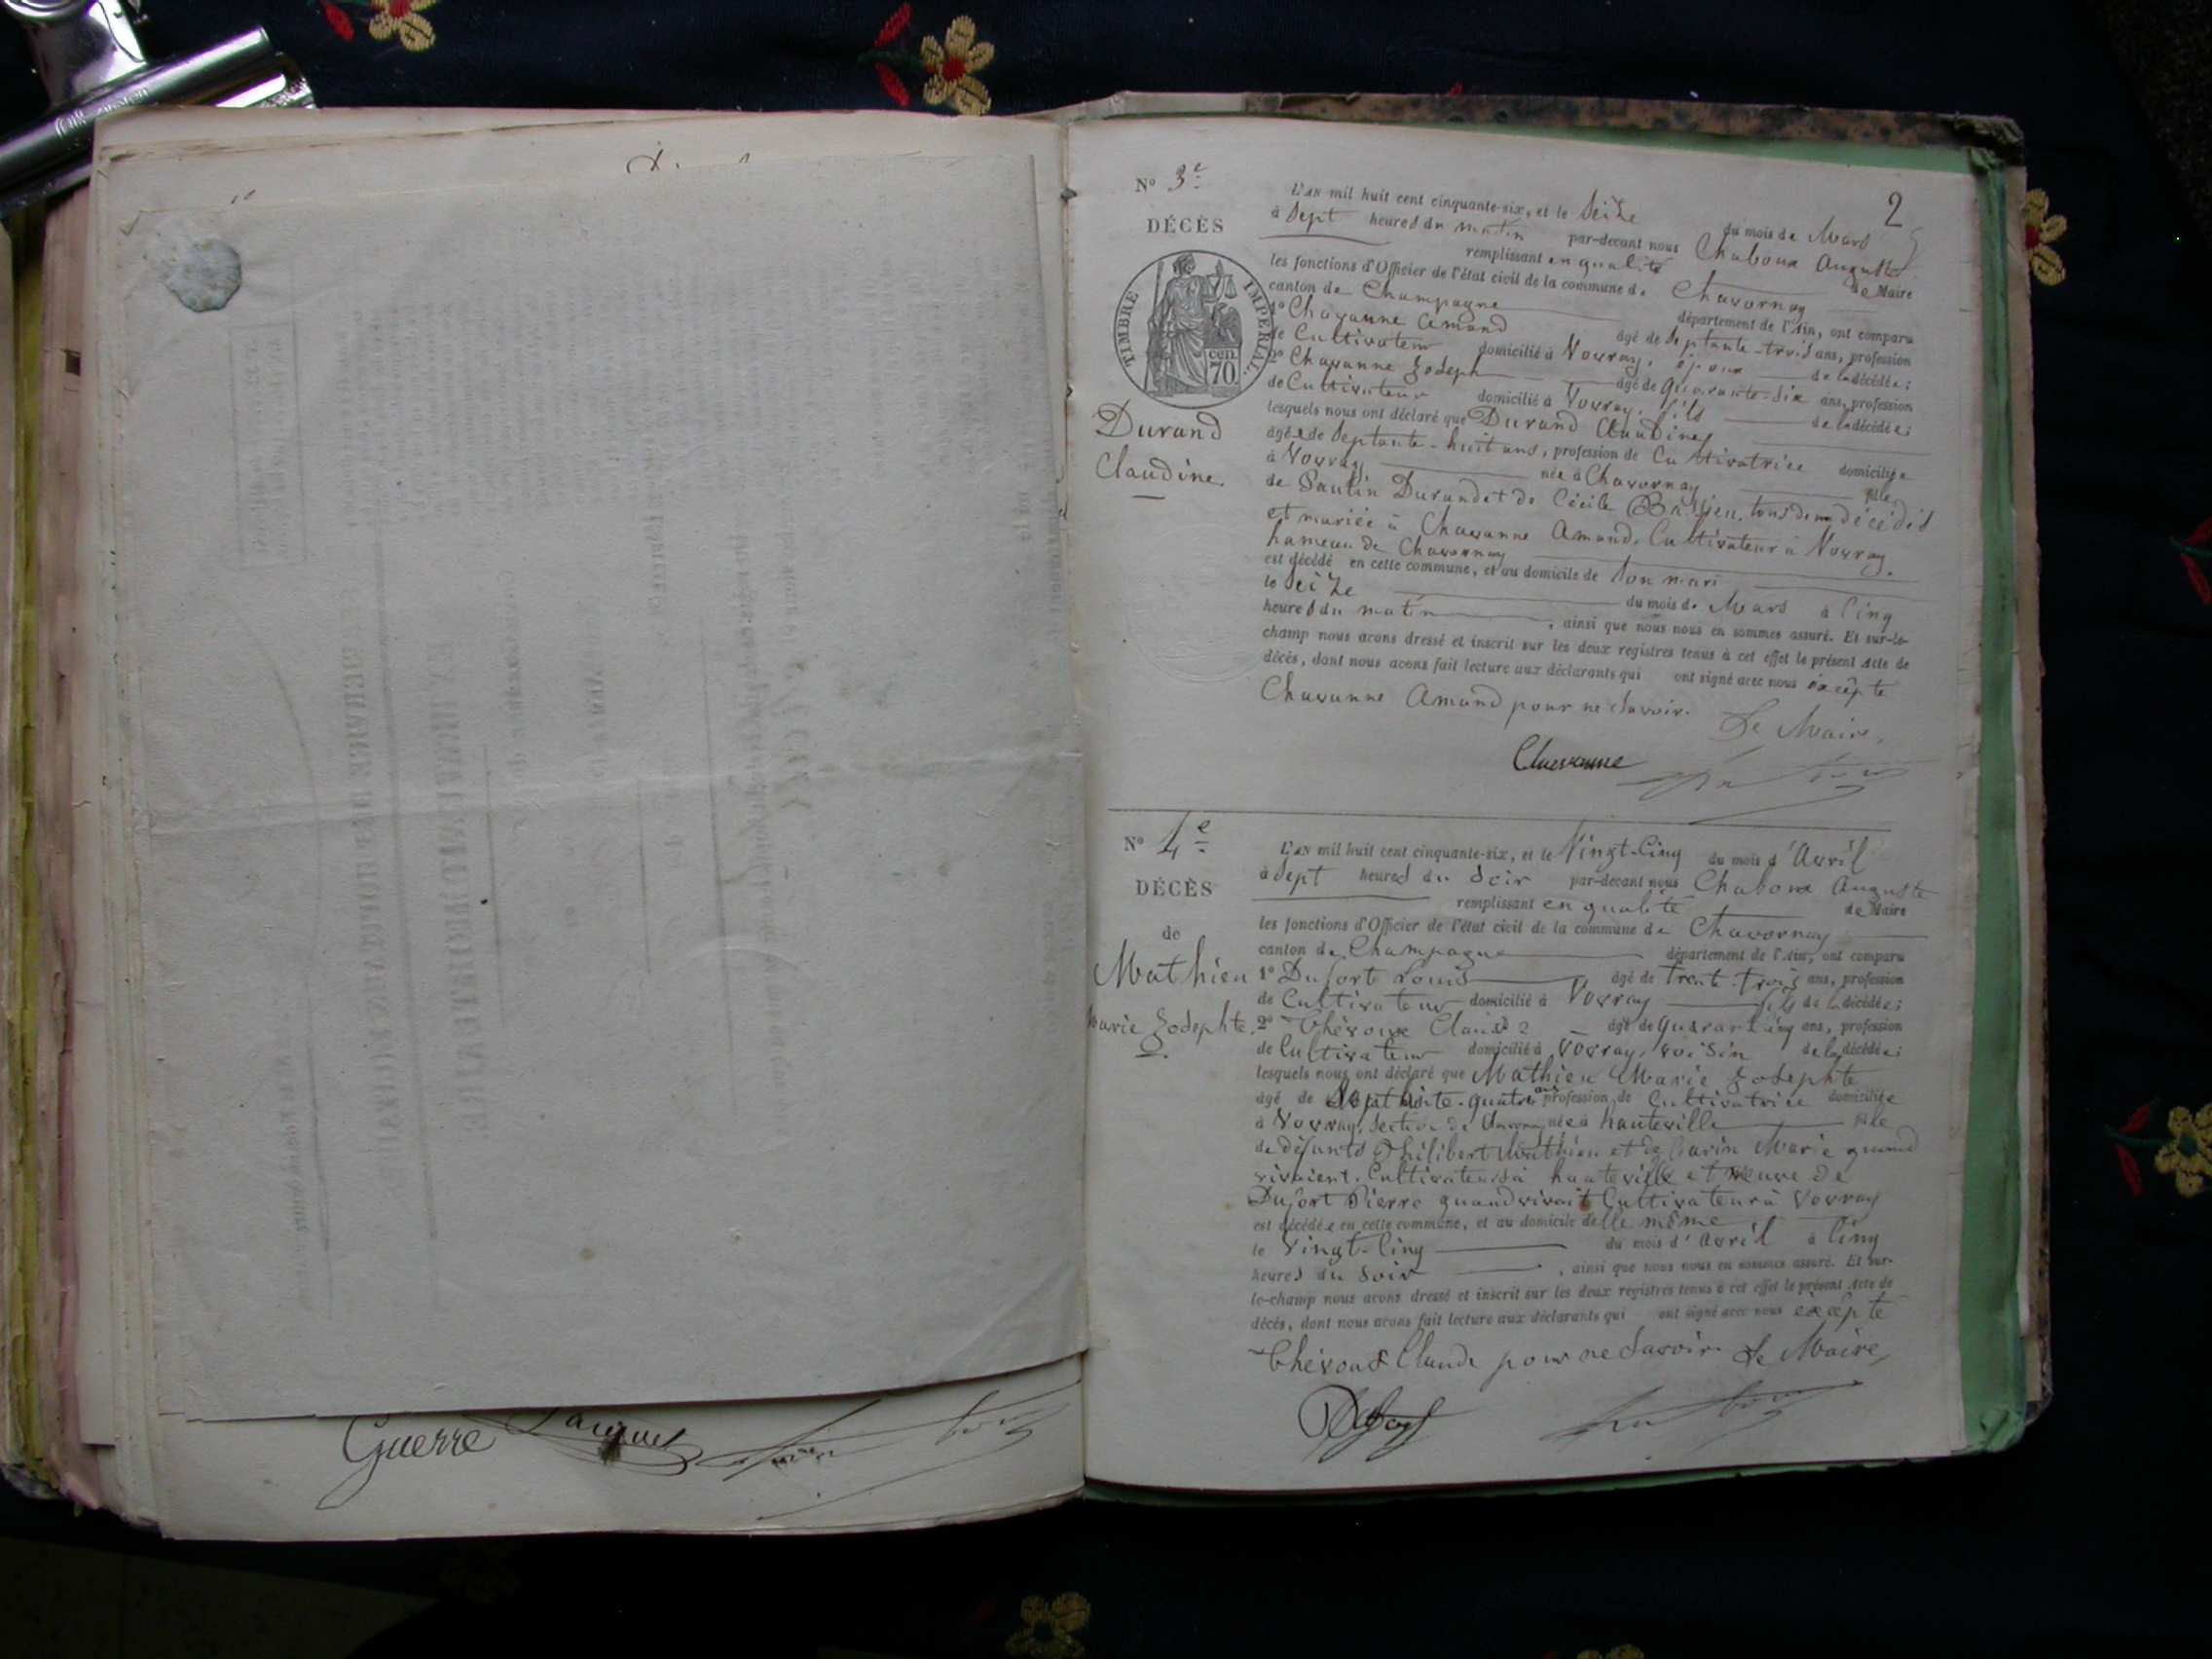 Guerre Jacquet
2
N° 3e
DÉCÈS
TIMBRE IMPÉRIAL.
cen. 70
Durand
Claudine
L'AN mil huit cent cinquante-six, et le Seize du mois de Mars
à Sept heures du matin par-devant nous Chaboux Auguste
remplissant en qualité de Maire
les fonctions d'Officier de l'état civil de la commune de Chavornay
canton de Champagne département de l'Ain, ont comparu
1° Chavanne Amand âgé de Septante-trois ans, profession
de Cultivateur domicilié à Vovray, époux de la décédée;
2° Chavanne Joseph âgé de quarante-six ans, profession
de Cultivateur domicilié à Vovray, fils de la décédée;
lesquels nous ont déclaré que Durand Claudine
âgée de Septante-huit ans, profession de Cultivatrice domiciliée
à Vovray née à Chavornay fille
de Paulin Durand et de Cécile tous deux décédés
et mariée à Chavanne Amand, Cultivateur à Vovray,
hameau de Chavornay
est décédé en cette commune, et au domicile de son mari
le Seize du mois de Mars à Cinq
heures du matin, ainsi que nous nous en sommes assuré. Et sur-le-
champ nous avons dressé et inscrit sur les deux registres tenus à cet effet le présent Acte de
décès, dont nous avons fait lecture aux déclarants qui ont signé avec nous excepté
Chavanne Amand pour ne Savoir. Le Maire,
Chavanne
N° 4e
DÉCÈS
de
Mathieu
Marie Josephte.
L'AN mil huit cent cinquante-six, et le Vingt-Cinq du mois d'Avril
à Sept heures du Soir par-devant nous Chaboux Auguste
remplissant en qualité de Maire
les fonctions d'Officier de l'état civil de la commune de Chavornay
canton de Champagne département de l'Ain, ont comparu
1° Dufort Louis âgé de trente-trois ans, profession
de Cultivateur domicilié à Vovray fils de la décédée;
2° Thévoux Claude âgé de ans, profession
de Cultivateur domicilié à Vovray, voisin de la décédée;
lesquels nous ont déclaré que Mathieu Marie Josephte
âgé de Septante-quatre ans profession de Cultivatrice domiciliée
à Vovray, Section de Chavornay née à hauteville fille
de défunts Philibert Mathieu et de Marie quand
vivaient Cultivateurs à hauteville et veuve de
Dufort Pierre quand vivait Cultivateur à Vovray
est décédée en cette commune, et au domicile d'elle même
le Vingt-Cinq du mois d'Avril à Cinq
heures du Soir, ainsi que nous nous en sommes assuré. Et sur-
le-champ nous avons dressé et inscrit sur les deux registres tenus à cet effet le présent Acte de
décès, dont nous avons fait lecture aux déclarants qui ont signé avec nous excepté
Thévoux Claude pour ne Savoir. Le Maire,
Dufort